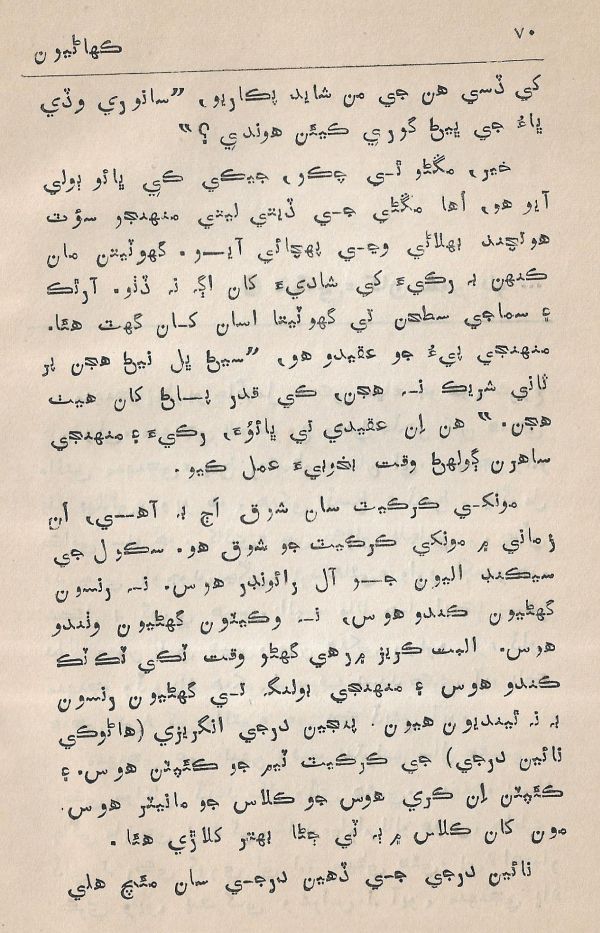 ۷۰
ڪهاڻيون
کي ڏسي هن جي من شايد پڪاريو، ”سانوري وڏي
ڀاءُ جي ڀيڻ گوري ڪيئن هوندي؟“
خير، مڱڻو ٿي چڪو، جيڪي ڪي ڀائو ٻولي
آيو هو، اُها مڱڻي جي ڏيتي ليتي منهنجو سؤٽ
هوتچند ڀهلاڻي وڃي پهچائي آيو. گهوٽيتن مان
ڪنهن به رڪيءَ کي شاديءَ کان اڳ نه ڏٺو. آرٿڪ
۽ سماجي سطحن تي گهوٽيتا اسان کان گهٽ هئا.
منهنجي پيءُ جو عقيدو هو، ”سيڻ ڀل نيڻ هجن پر
ثاني شريڪ نه هجن، ڪي قدر پاڻ کان هيٺ
هجن.“ هن اِن عقيدي تي ڀائوءَ، رڪيءَ ۽ منهنجي
ساهرن ڳولهڻ وقت بخوبيءَ عمل ڪيو.
مونکي ڪرڪيٽ سان شوق اَڄ به آهي، اُن
زماني ۾ مونکي ڪرڪيٽ جو شوق هو. سڪول جي
سيڪنڊ اليون جو آل رائونڊر هوس. نه رنسون
گهڻيون ڪندو هوس، نه وڪيٽون گهڻيون وٺندو
هوس. البت ڪريز ۾ رهي گهڻو وقت ٽڪي ٽڪ ٽڪ
ڪندو هوس ۽ منهنجي بولنگ تي گهڻيون رنسون
به نه ٿينديون هيون. پنجين درجي انگريزي (هاڻوڪي
نائين درجي) جي ڪرڪيٽ ٽيم جو ڪئپٽن هوس. ۽
ڪئپٽن اِن ڪري هوس جو ڪلاس جو مانيٽر هوس.
مون کان ڪلاس ۾ به ٽي ڄڻا بهتر کلاڙي هئا.
نائين درجي جي ڏهين درجي سان مئچ هلي